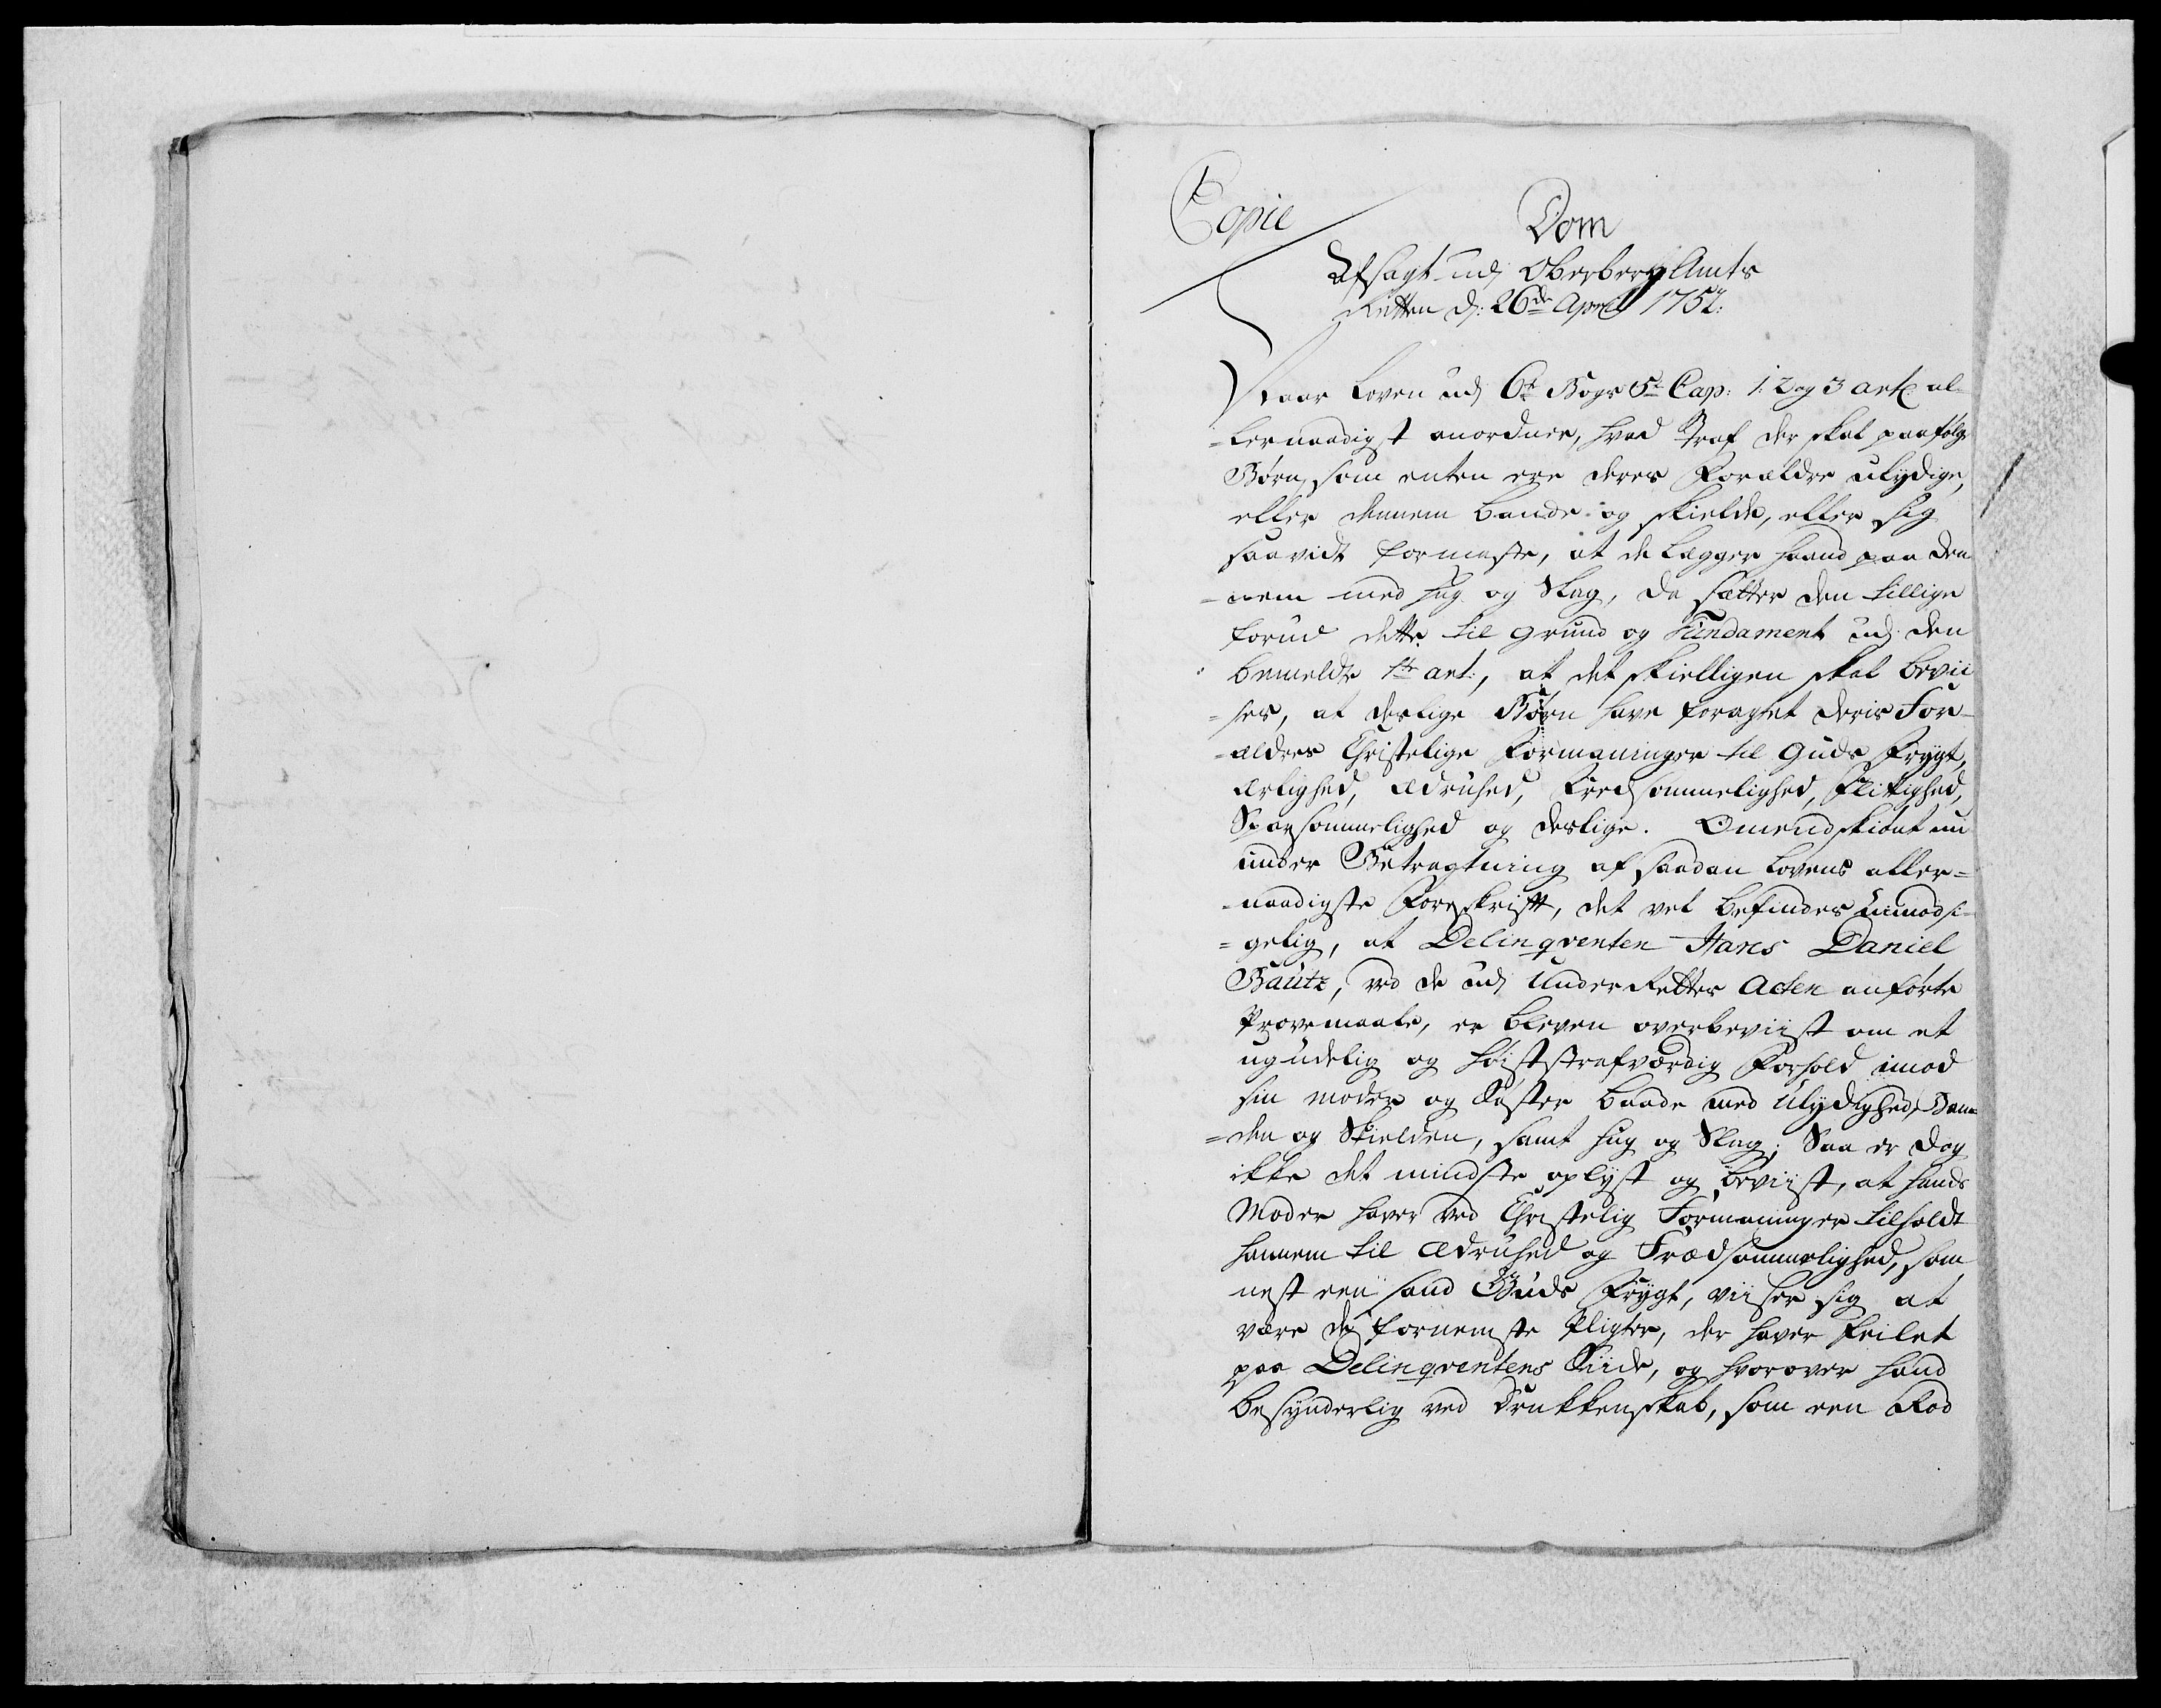 Copie
Dom
Afsagt udj OberbergAmts
Retten d: 26de April 1752:
Naar Loven udj 6te Bogs 5te Cap: 1. 2 og 3 art: al-
=lernaadigst anordner, hvad Straf der skal paafølge
Børn, som enten ere deres Forældre ulydige,
eller dennem bande og skielde, eller sig
saavidt formaste, at de lægger haand paa den
=nem med hug og Slag, da sætter den tillige
forud dette til grund og Fundament udj den
bemeldte 1ste art:, at det skielligen skal bevii
=ses, at deslige Børn have foragtet deris For-
=ældres Christelige Formaninger til Guds Frygt,
Ærlighed, Ædruhed, Fredsommelighed, Flittighed,
Sparsommelighed og deslige. Omendskiønt nu
under Betragtning af saadan Lovens aller=
=naadigste Forskrifft, det vel befindes uimodsi-
=gelig, at Delinqventen Hans Daniel
Bautz, ved de udj UnderRettes Acten anførte
Prøvemaale, er bleven overbeviist om et
ugudelig og høiststrafværdig Forhold imod
sin Moder og Søster baade med Ulydighed, Ban=
=den og Skielden, samt hug og Slag; Saa er dog
ikke det mindste oplyst og beviist, at hands
Moder haver ved Christelig Formaninger tilholdt
hannem til Ædruhed og Frædsommelighed, som
nest een sand Guds Frygt, viiser sig at
være de fornemste Pligter, der haver feilet
paa Delinqventens Siide, og hvorover hand
besynderlig ved Drukkenskab, som een Rod